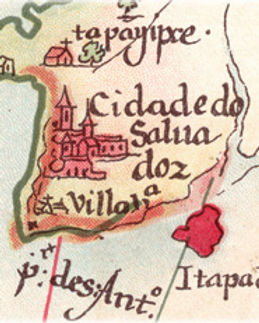 tapayipe.
Cidade do
Salua
doz
Villaụª
p.ᵗᵃ des. Ant.º
Itapa